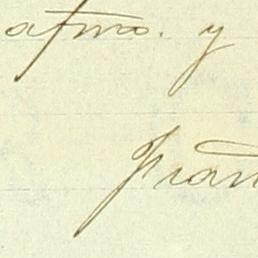 afmo. y
Fran